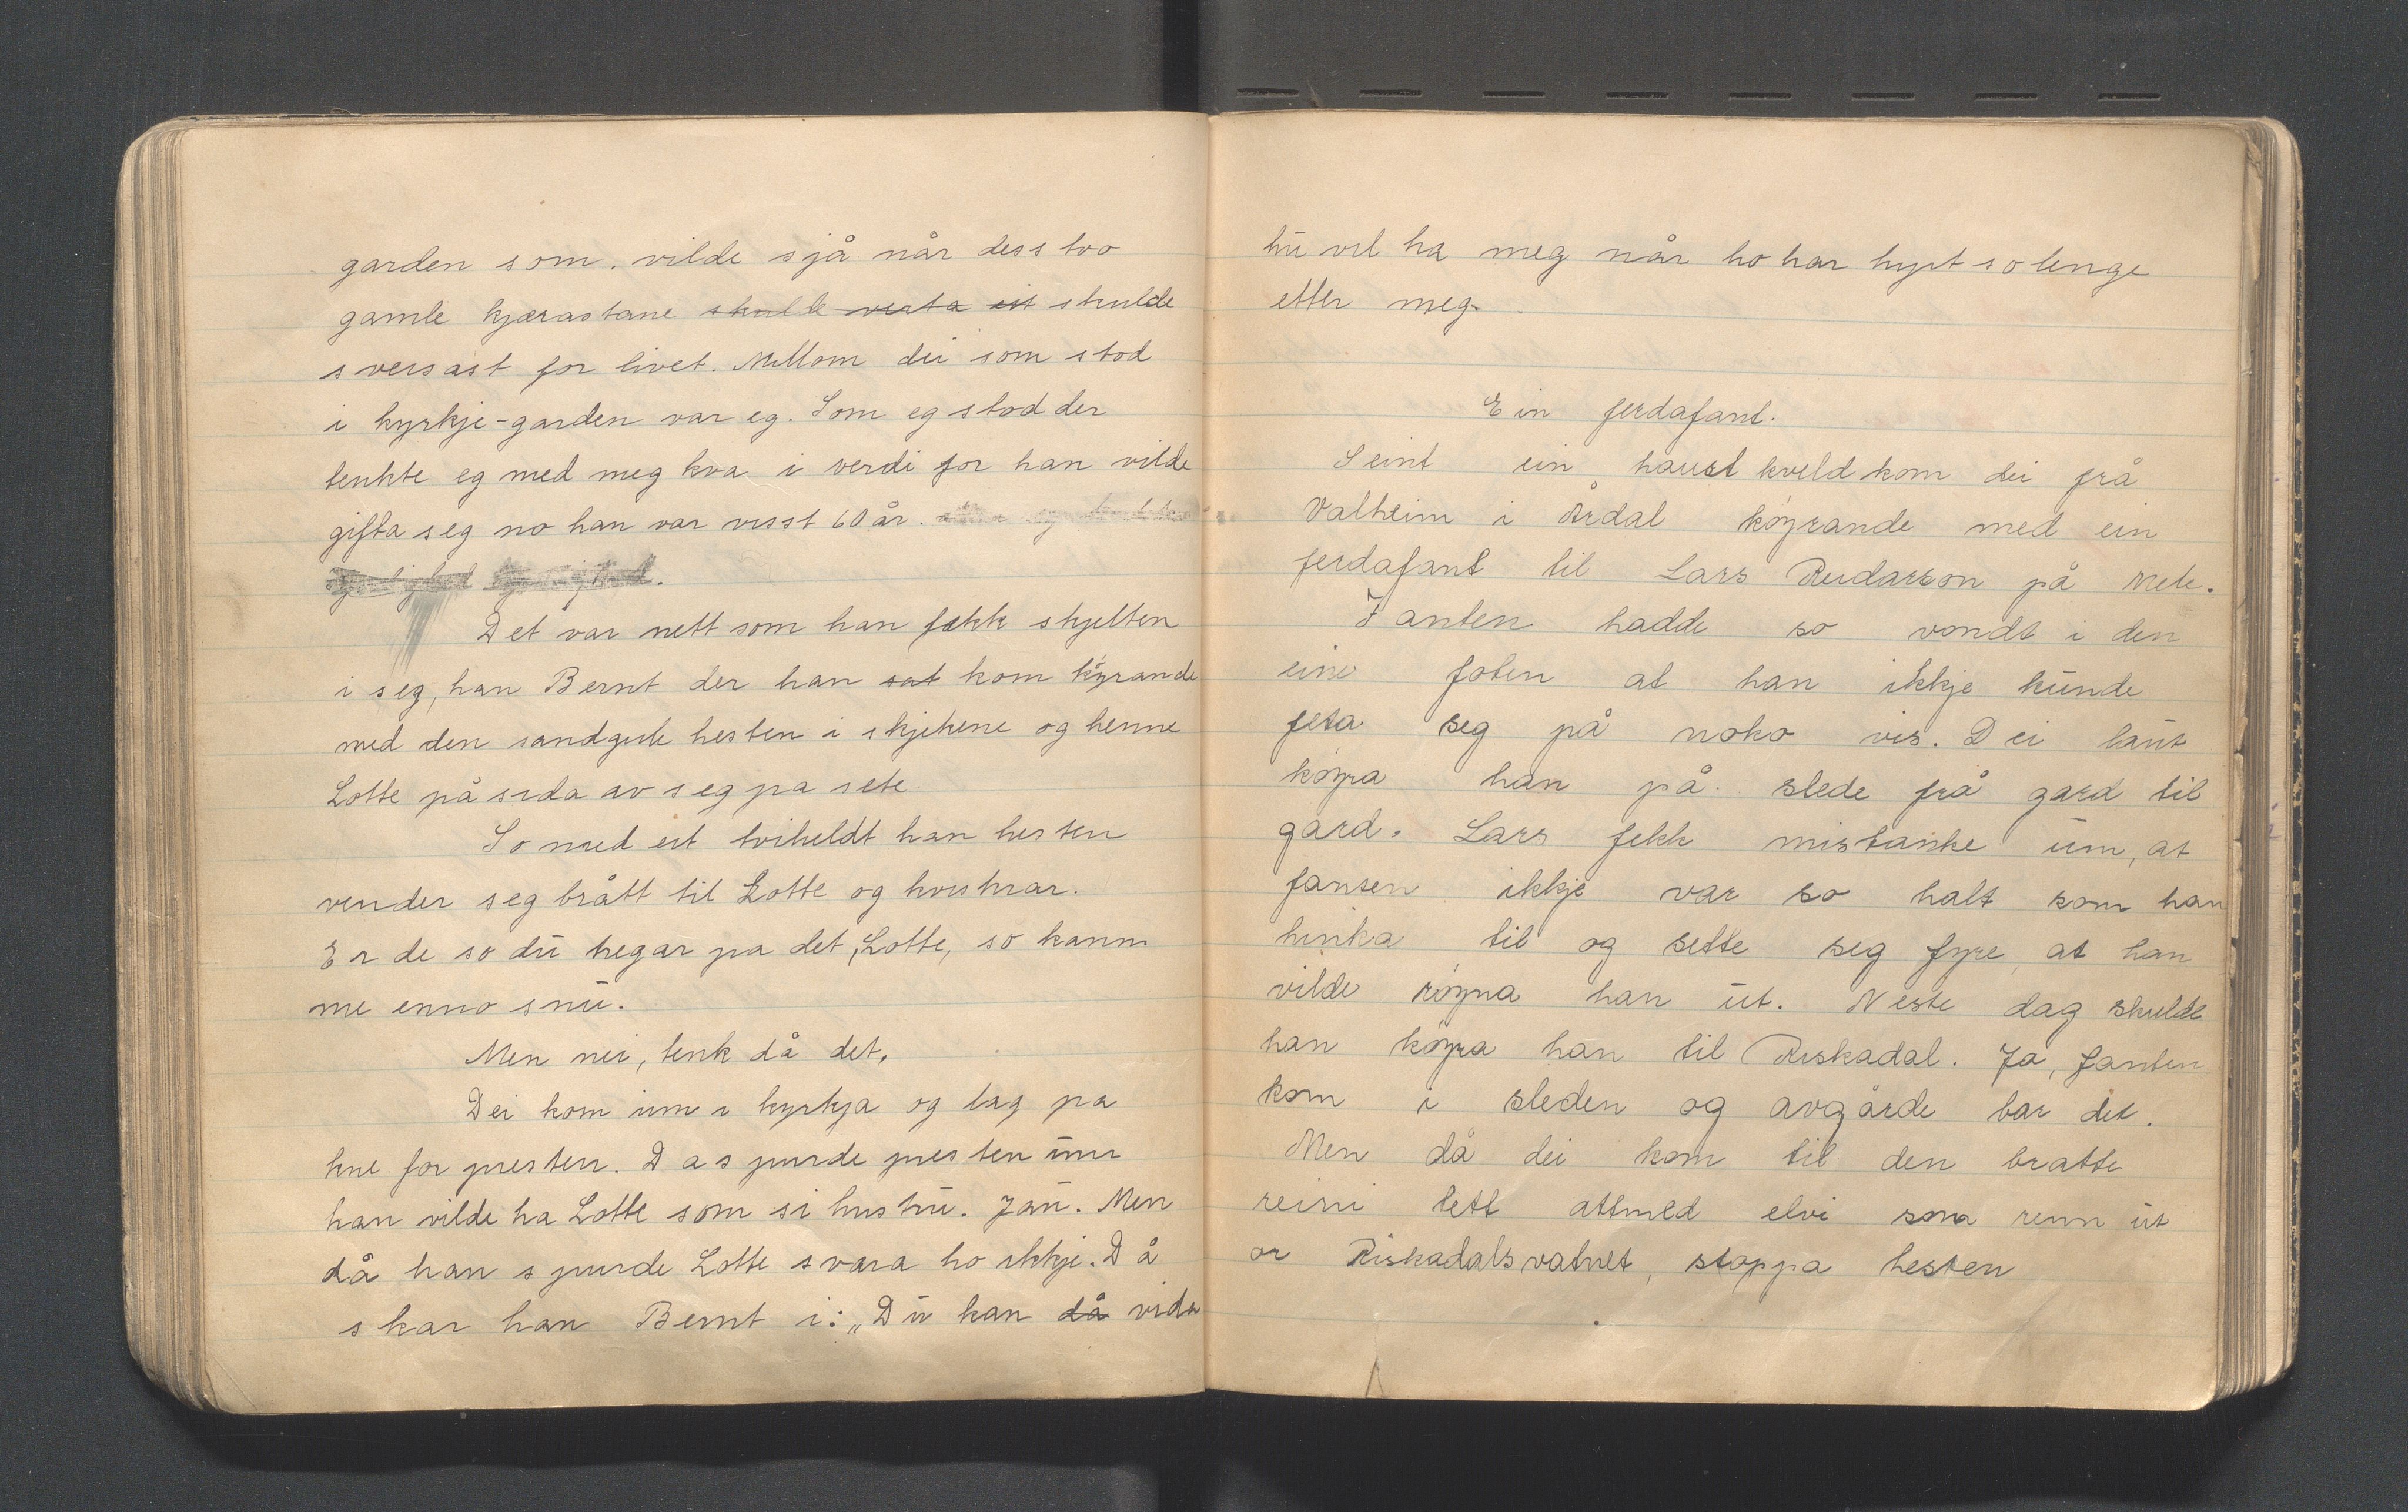 garden som. vilde sjå når dess tvo
gamle kjærastane skulle verta eit skulde
sversast for livet. Millom dei som stod
i kyrkje-garden var eg. Som eg stod der
tenkte eg med meg kva i verdi for han vilde
gifta seg no han var visst 60 år.
Det var nett som han fekk skjelten
i seg, han Bernt der han sat kom køyrande
med den sandgule hesten i skjekene og henne
Lotte på sida av seg pa sete
So med eit tviheldt han hesten
vender seg brått til Lotte og kviskrar.
Er de so dū tregar pa det, Lotte, so kann
me enno snū.
Men nei, tenk då det.
Dei kom ūm i kyrkja og lag pa
kne for presten. Da spurde presten ūm
han vilde ha Lotte som si hustrū. Jaū. Men
då han spurde Lotte svara ho ikkje. Då
skar han Bernt i: „Dū kan då vida
hū vil ha meg når ho har hyrt so lenge
etter meg.
Ein ferdafant.
Seint ein haust kveld kom dei frå
Valheim i Årdal køyrande med ein
ferdafant til Lars Reidarson på Mele.
Fanten hadde so vondt i den
eine foten at han ikkje kūnde
feta seg på noko vis. Dei laūt
køyra han på slede frå gard til
gard. Lars fekk mistanke ūm, at
fanten ikkje var so halt som han
hinka til og sette seg fyre, at han
vilde røyna han ūt. Neste dag skulde
han køyra han til Riskadal. Ja, fanten
kom i sleden og avgårde bar det.
Men då dei kom til den bratte
reini tett attmed elvi som renn ūt
or Riskadalsvatnet, stoppa hesten